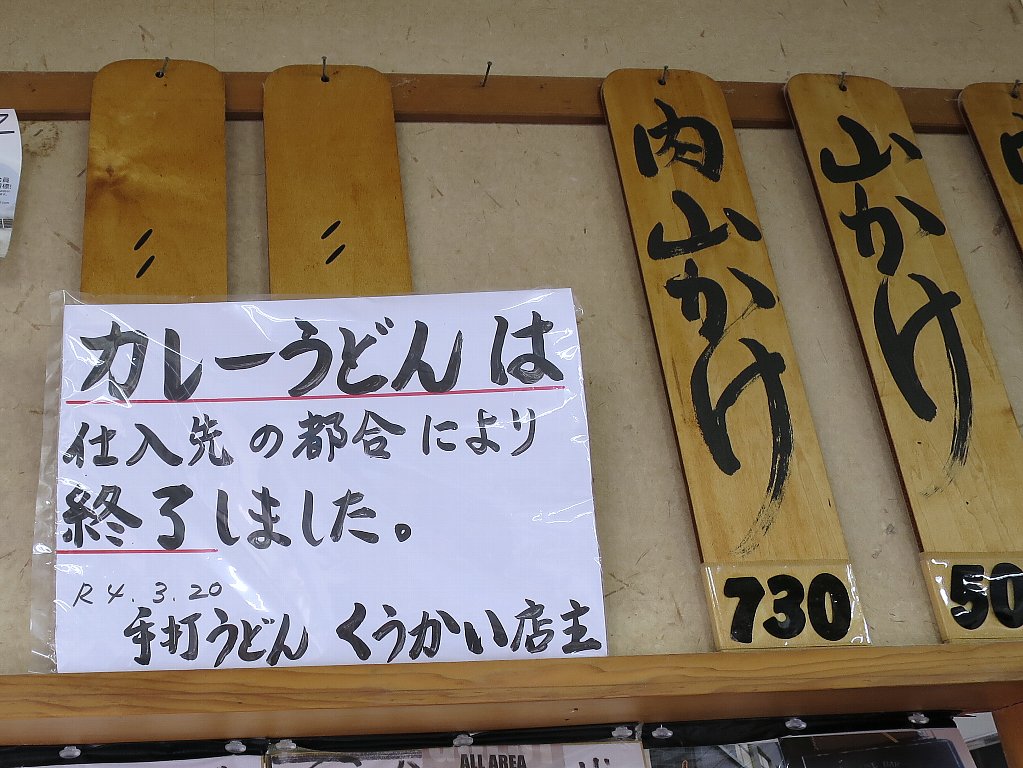 カレーうどんは
仕入先の都合により
終了しました。
R4.3.20
手打うどん くうかい店主
肉山かけ
730
山かけ
50
ALL AREA